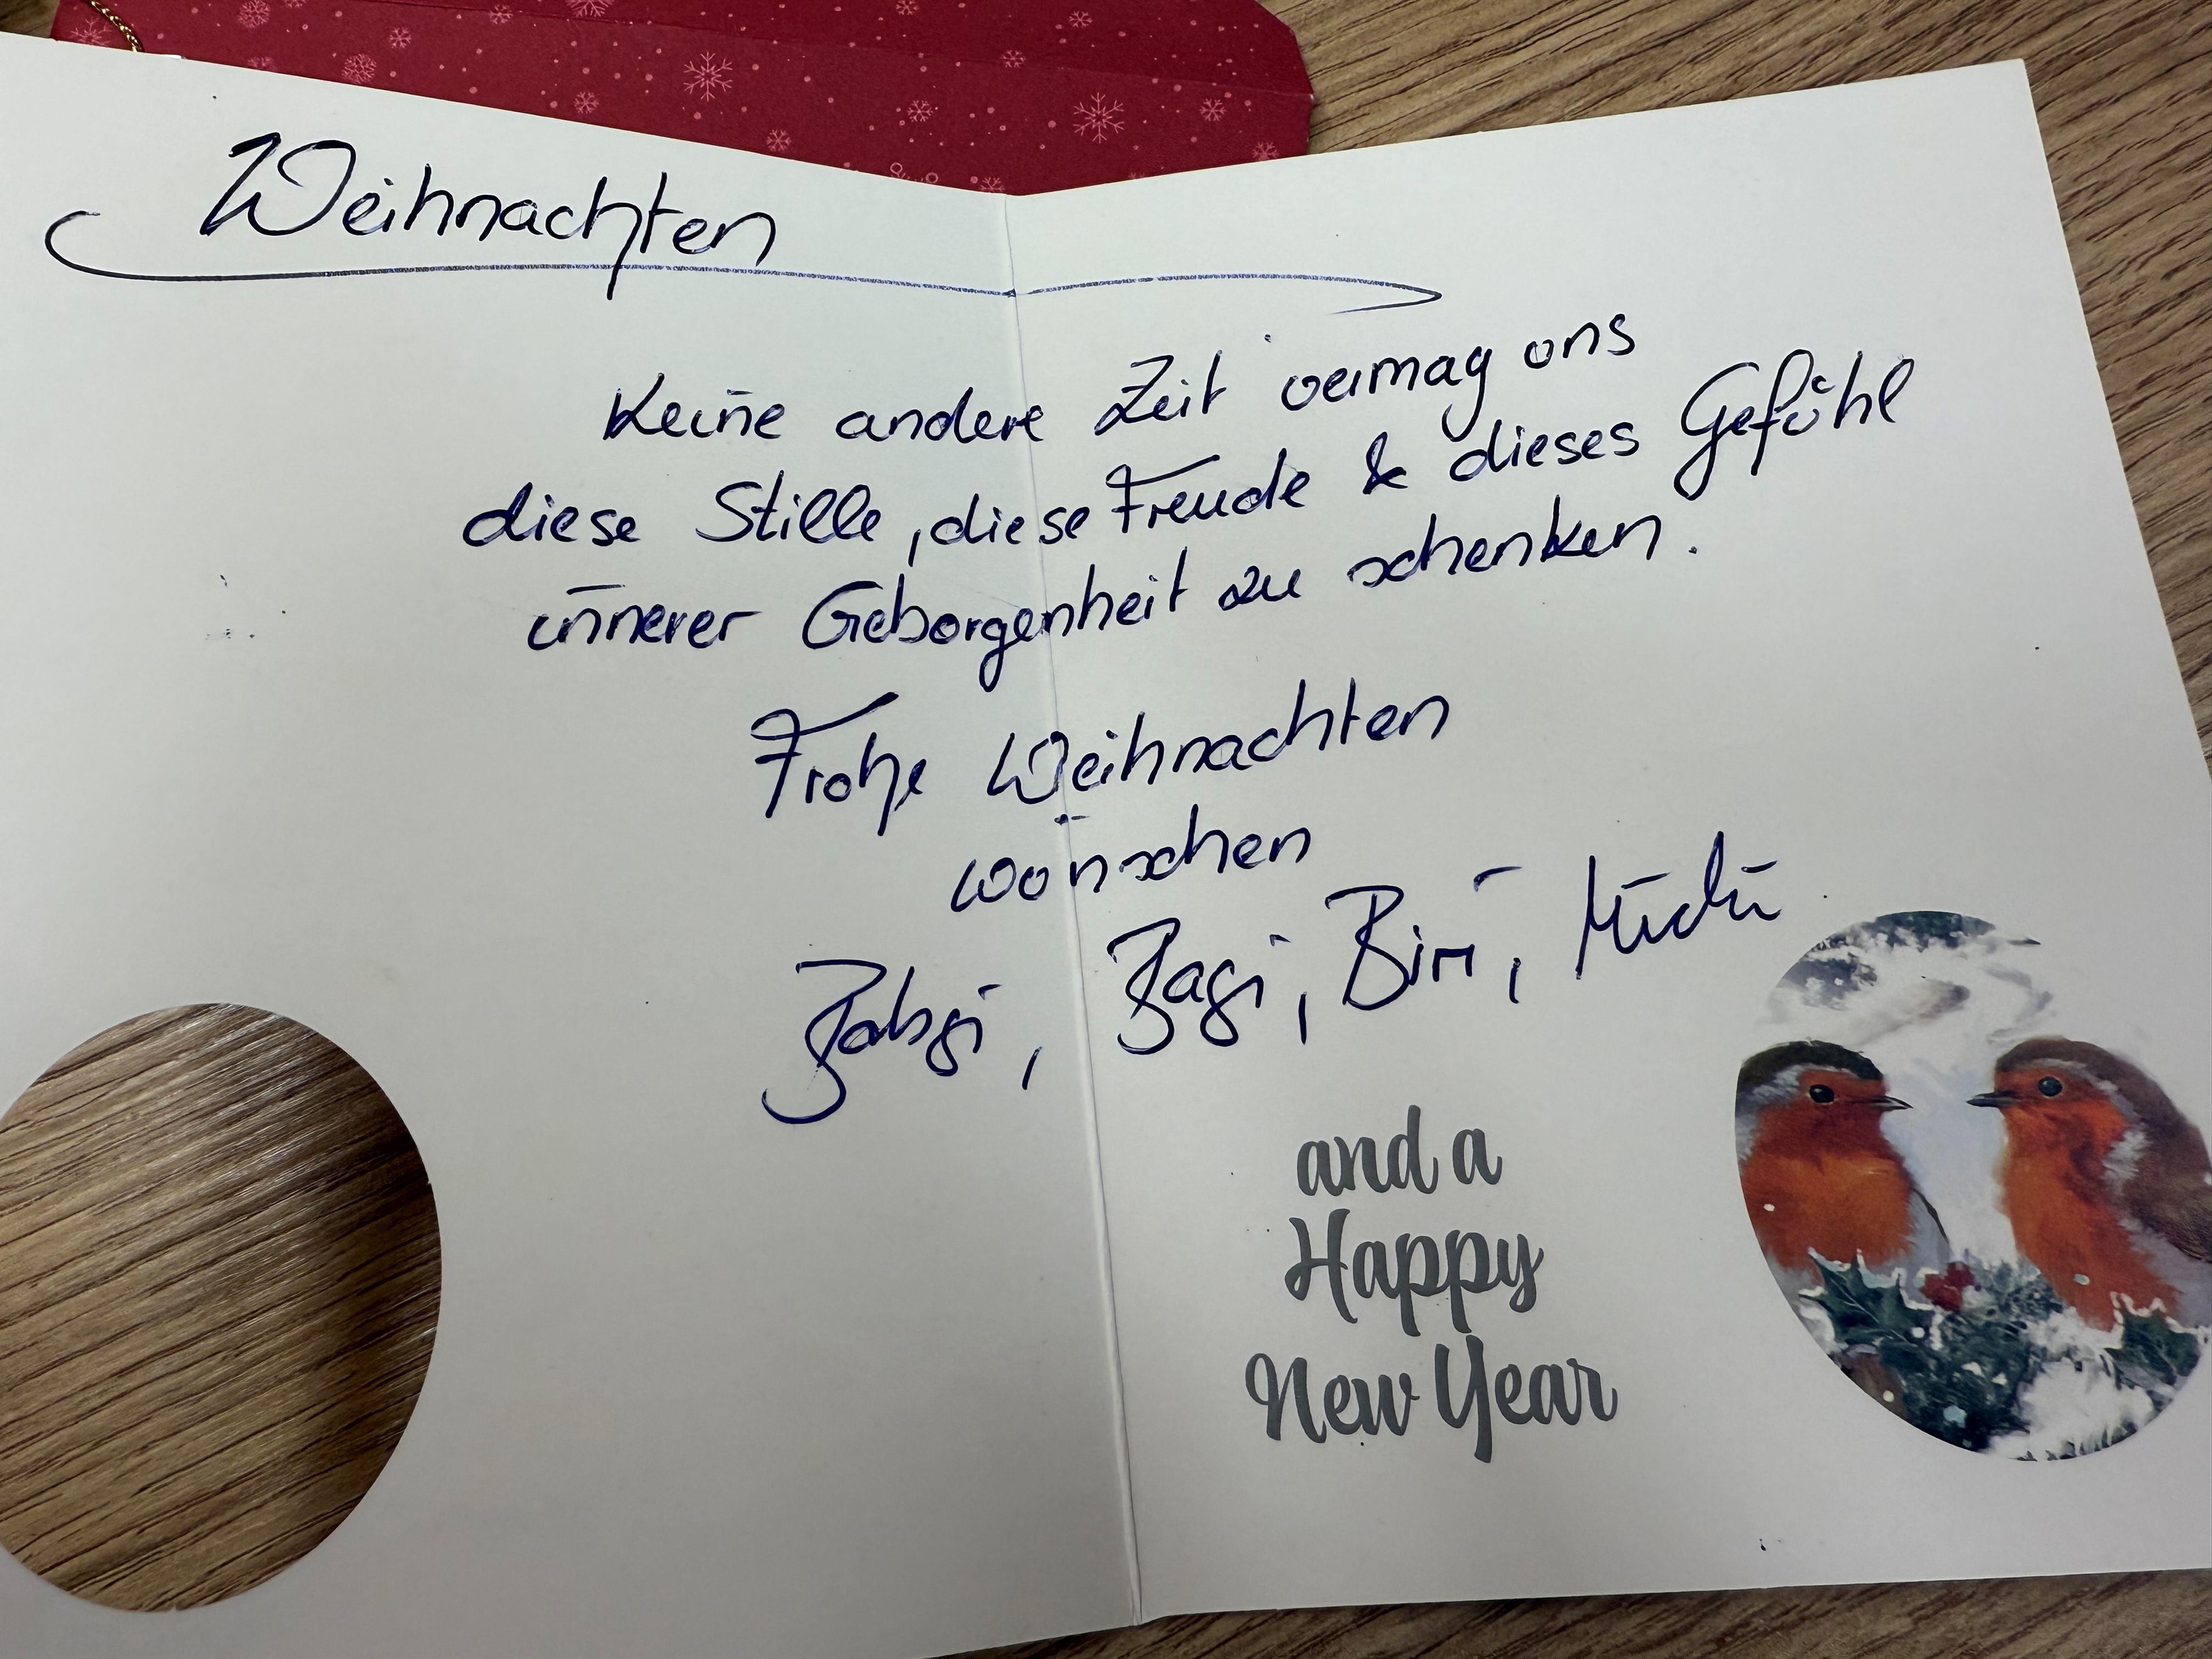 Weihnachten
Keine andere Zeit vermag uns
diese Stille, diese Freude & dieses Gefühl
innerer Geborgenheit zu schenken.
Frohe Weihnachten
wünschen
Babsi, Bagi, Birı, Michi
and a
Happy
New Year